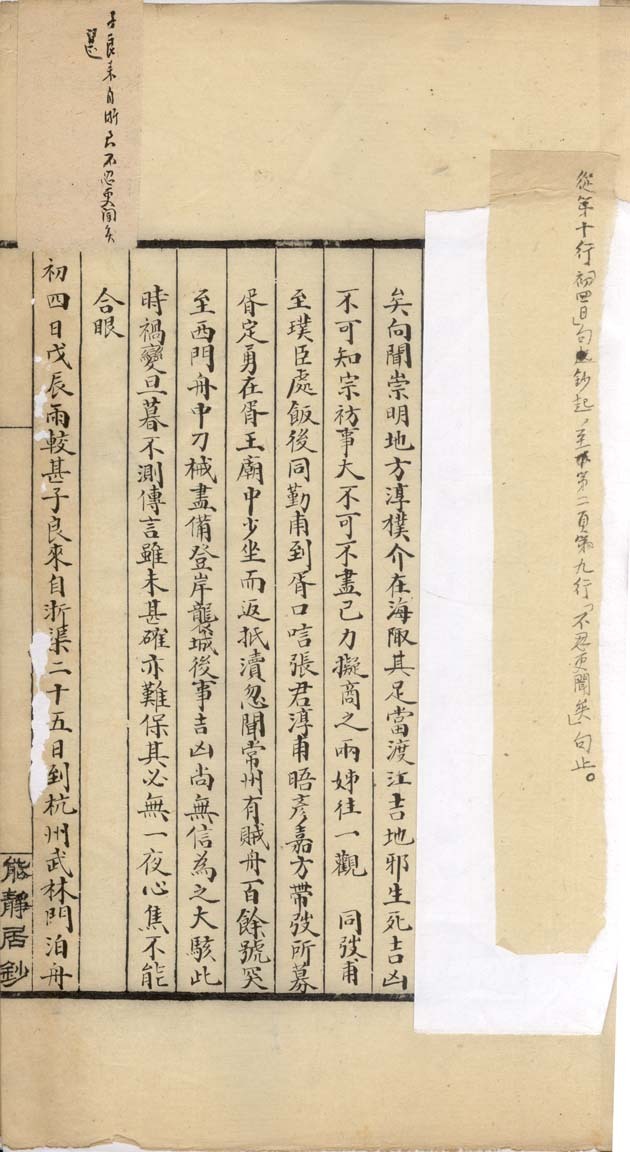 從第十行「初四日」句鈔起,至第二頁第九行「不忍更聞矣」句止。
矣向聞崇明地方淳樸介在海陬其足當渡江吉地邪生死吉凶
不可知宗祊事大不可不盡己力擬商之兩姊往一觀　同弢甫
至璞臣處飯後同勤甫到胥口唁張君淳甫晤彥嘉方帶弢所募
胥定勇在胥王廟中少坐而返抵瀆忽聞常州有賊舟百餘號突
至西門舟中刀械盡備登岸龍城後事吉凶尚無信為之大駭此
時禍變旦暮不測傳言雖未甚確亦難保其必無一夜心焦不能
合眼
初四日戊辰雨較甚子良來自浙渠二十五日到杭州武林門泊舟
能靜居鈔
子良來自浙不忍更聞矣
選